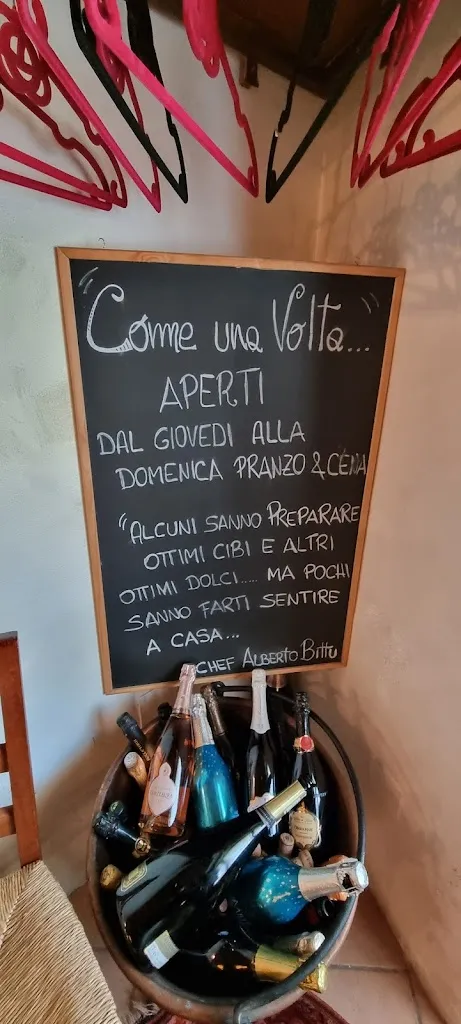 "Come una Volta..."
APERTI
DAL GIOVEDI ALLA
DOMENICA PRANZO & CENA
"ALCUNI SANNO PREPARARE
OTTIMI CIBI E ALTRI
OTTIMI DOLCI..... MA POCHI
SANNO FARTI SENTIRE
A CASA...
CHEF ALBERTO Bittu